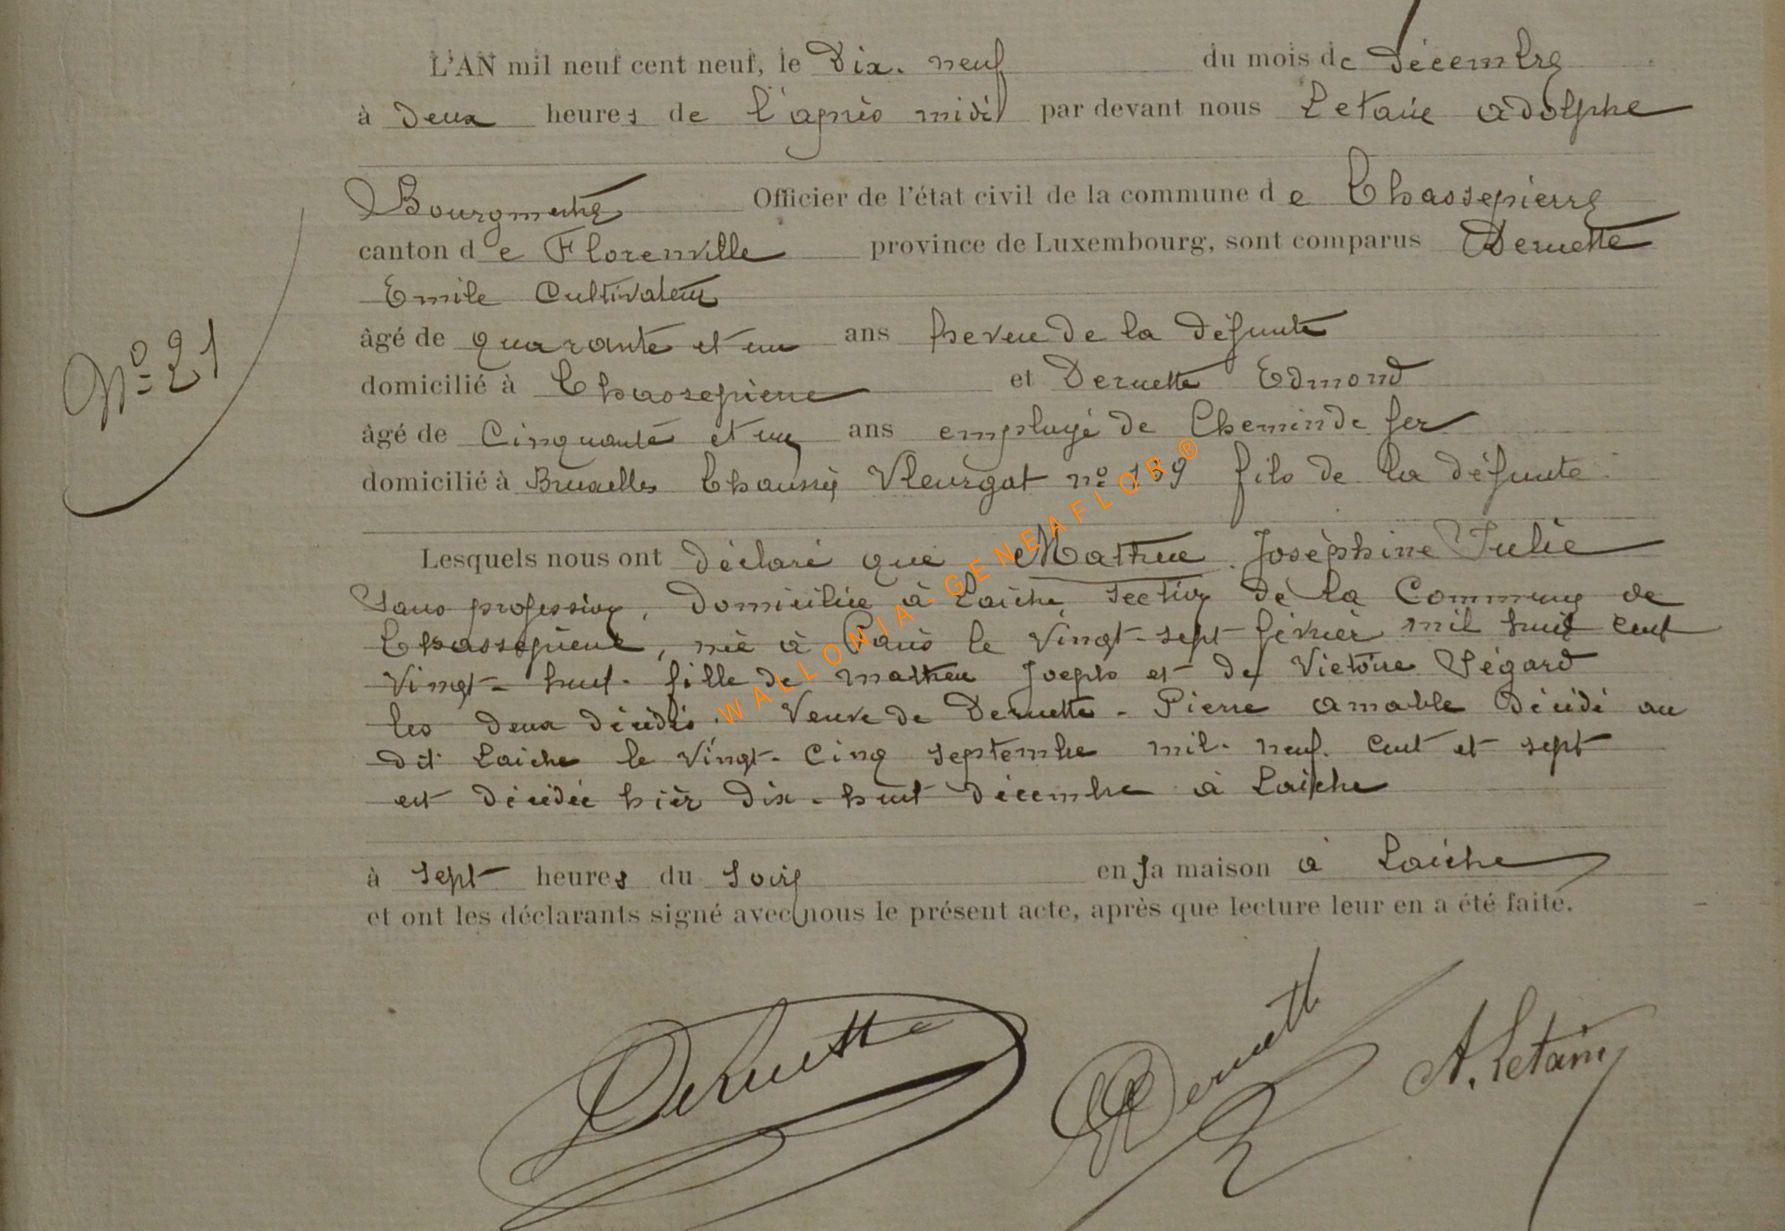 L'AN mil neuf cent neuf, le Dix-neuf du mois de Décembre
à Deux heures de l'après midi par devant nous Letaie Adolphe
Bourgmestre Officier de l'état civil de la commune de Chassepierre
canton de Florenville province de Luxembourg, sont comparus Deruette
Emile Cultivateur
âgé de quarante et un ans neveu de la défunte
domicilié à Chassepierre et Deruette Edmond
âgé de Cinquante et un ans employé de Chemin de fer
domicilié à Bruxelles Chaussée Vleurgat n° 159 fils de la défunte
N° 21
Lesquels nous ont déclaré que Mathieu Joséphine Julie
Sans profession, domiciliée à Laiche section de la Commune de
Chassepierre, née à Paris le vingt-sept février mil huit cent
vingt-huit fille de Mathieu Joseph et de Victoire Ségard
les deux décédés, Veuve de Deruette-Pierre Amable décédé au
dit Laiche le vingt-cinq septembre mil-neuf-cent et sept
est décédée hier dix-huit décembre à Laiche
à sept heures du soir en sa maison à Laiche
et ont les déclarants signé avec nous le présent acte, après que lecture leur en a été faite.
Deruette Deruette A. Letaie
WALLONIA-GENEAFLOR®